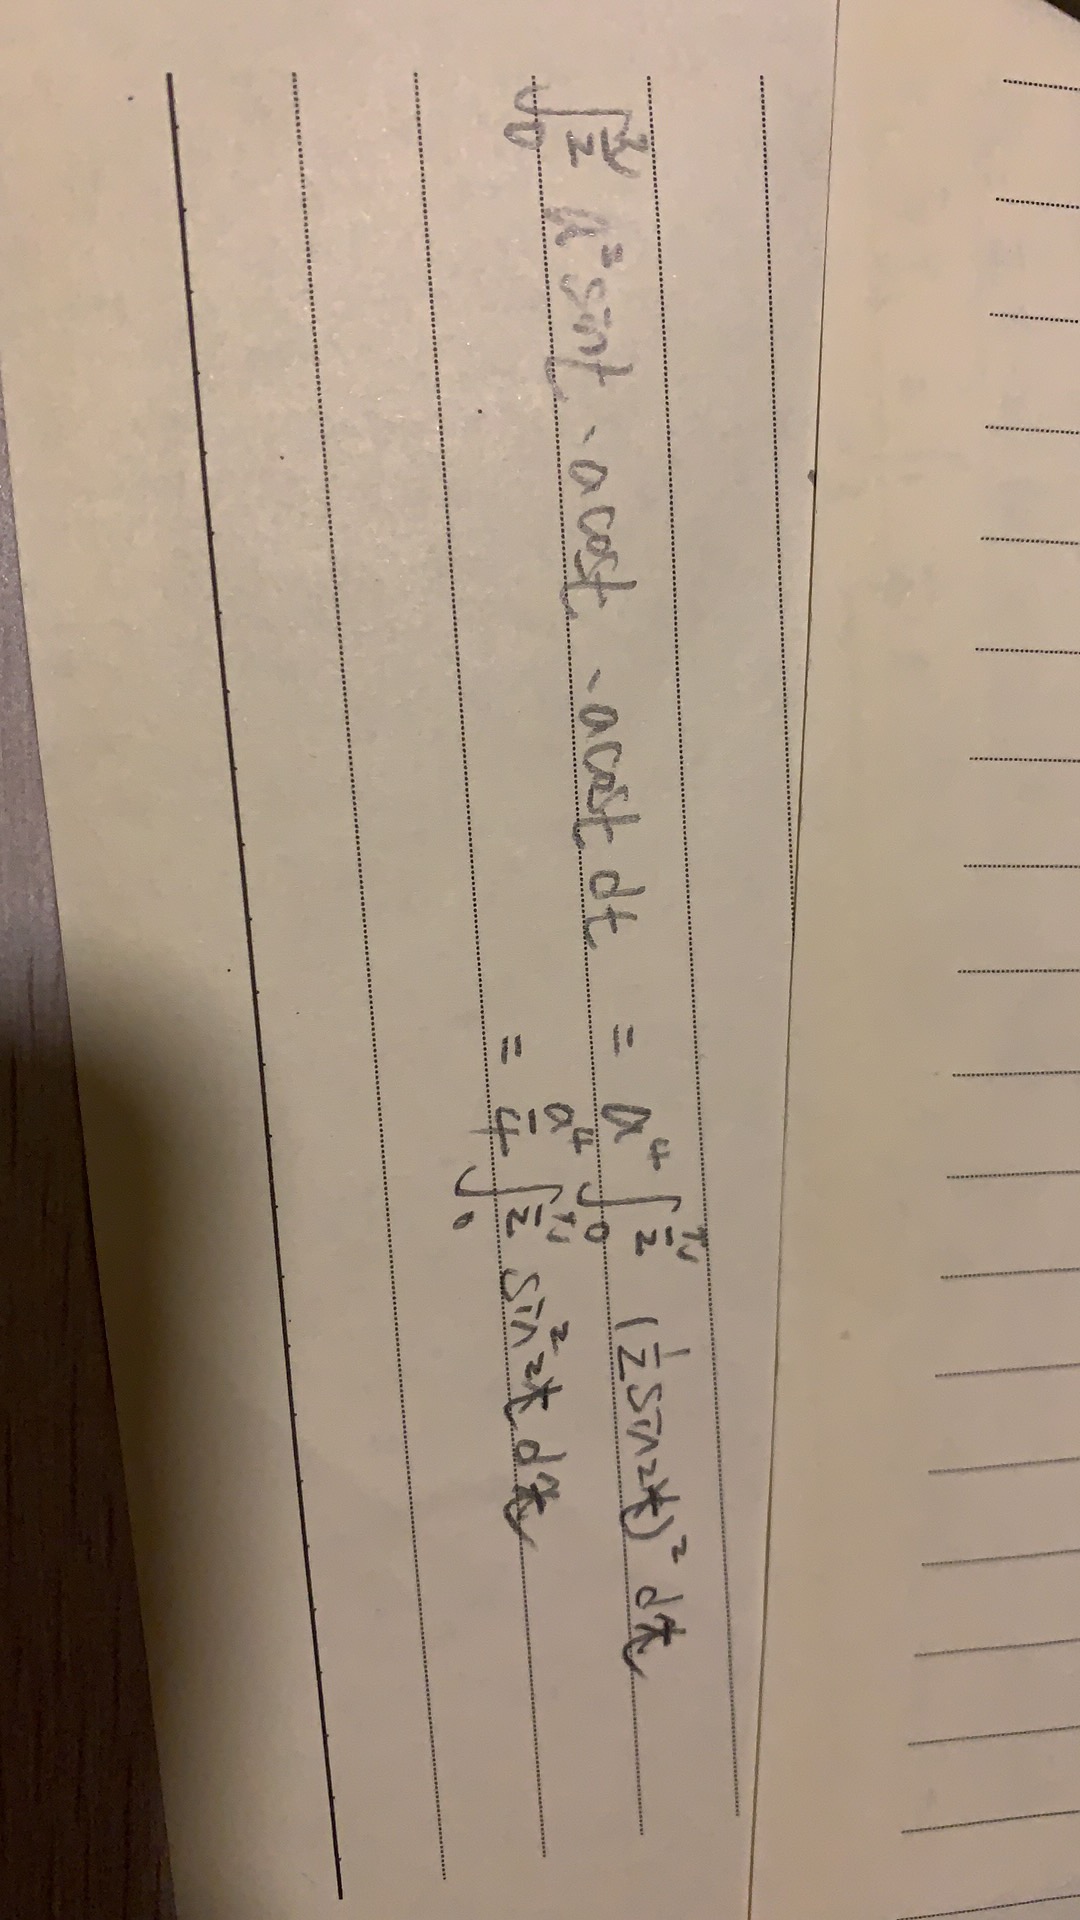 ∫₀^{π/2} a² sint · a cost · a cost dt = a⁴ ∫₀^{π/2} (1/2 sin2t)² dt
= a⁴/4 ∫₀^{π/2} sin²2t dt